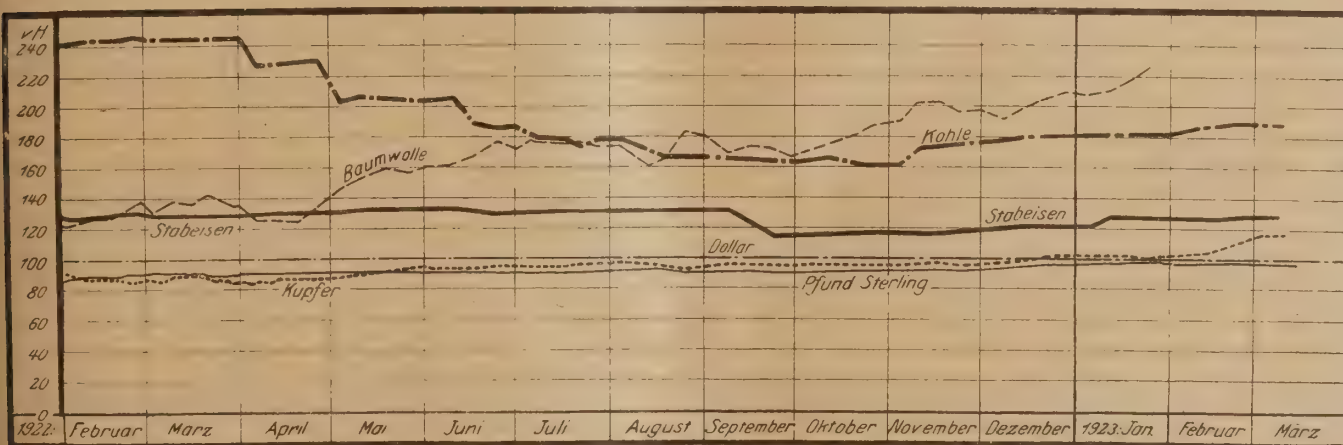 vH
240
220
200
180
160
140
120
100
80
60
40
20
0
Baumwolle
Kohle
Stabeisen
Stabeisen
Dollar
Kupfer
Pfund Sterling
1922: Februar März April Mai Juni Juli August September Oktober November Dezember 1923: Jan. Februar März